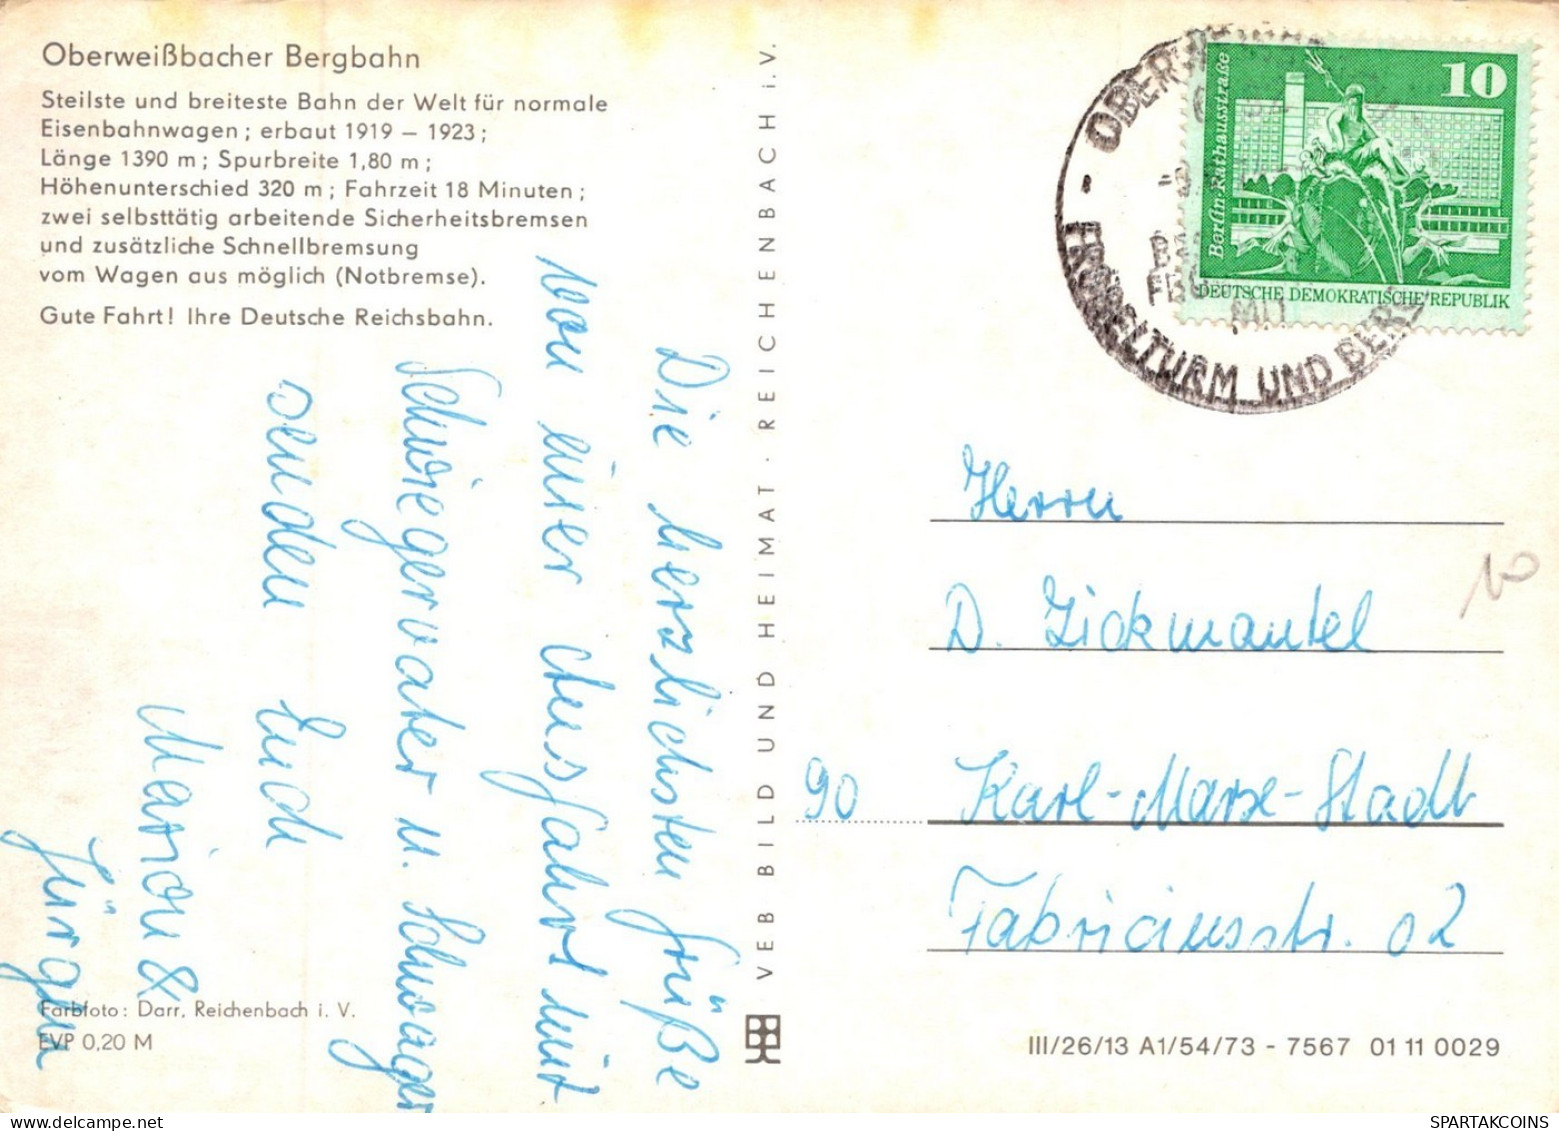 Oberweißbacher Bergbahn
Steilste und breiteste Bahn der Welt für normale
Eisenbahnwagen; erbaut 1919 – 1923;
Länge 1390 m; Spurbreite 1,80 m;
Höhenunterschied 320 m; Fahrzeit 18 Minuten;
zwei selbsttätig arbeitende Sicherheitsbremsen
und zusätzliche Schnellbremsung
vom Wagen aus möglich (Notbremse).
Gute Fahrt! Ihre Deutsche Reichsbahn.
Die herzlichsten Grüße
von einer Ausfahrt mit
Schwiegervater u. Schwager
senden Euch
Marion &
Jürgen
Farbfoto: Darr, Reichenbach i. V.
EVP 0,20 M
VEB BILD UND HEIMAT · REICHENBACH i. V.
10
Berlin-Rathausstraße
DEUTSCHE DEMOKRATISCHE REPUBLIK
FRÖBELTURM UND
Herrn
D. Zickmantel
90 Karl-Marx-Stadt
Fabriciusstr. 02
10
III/26/13 A1/54/73 - 7567 01 11 0029
SPARTAKCOINS